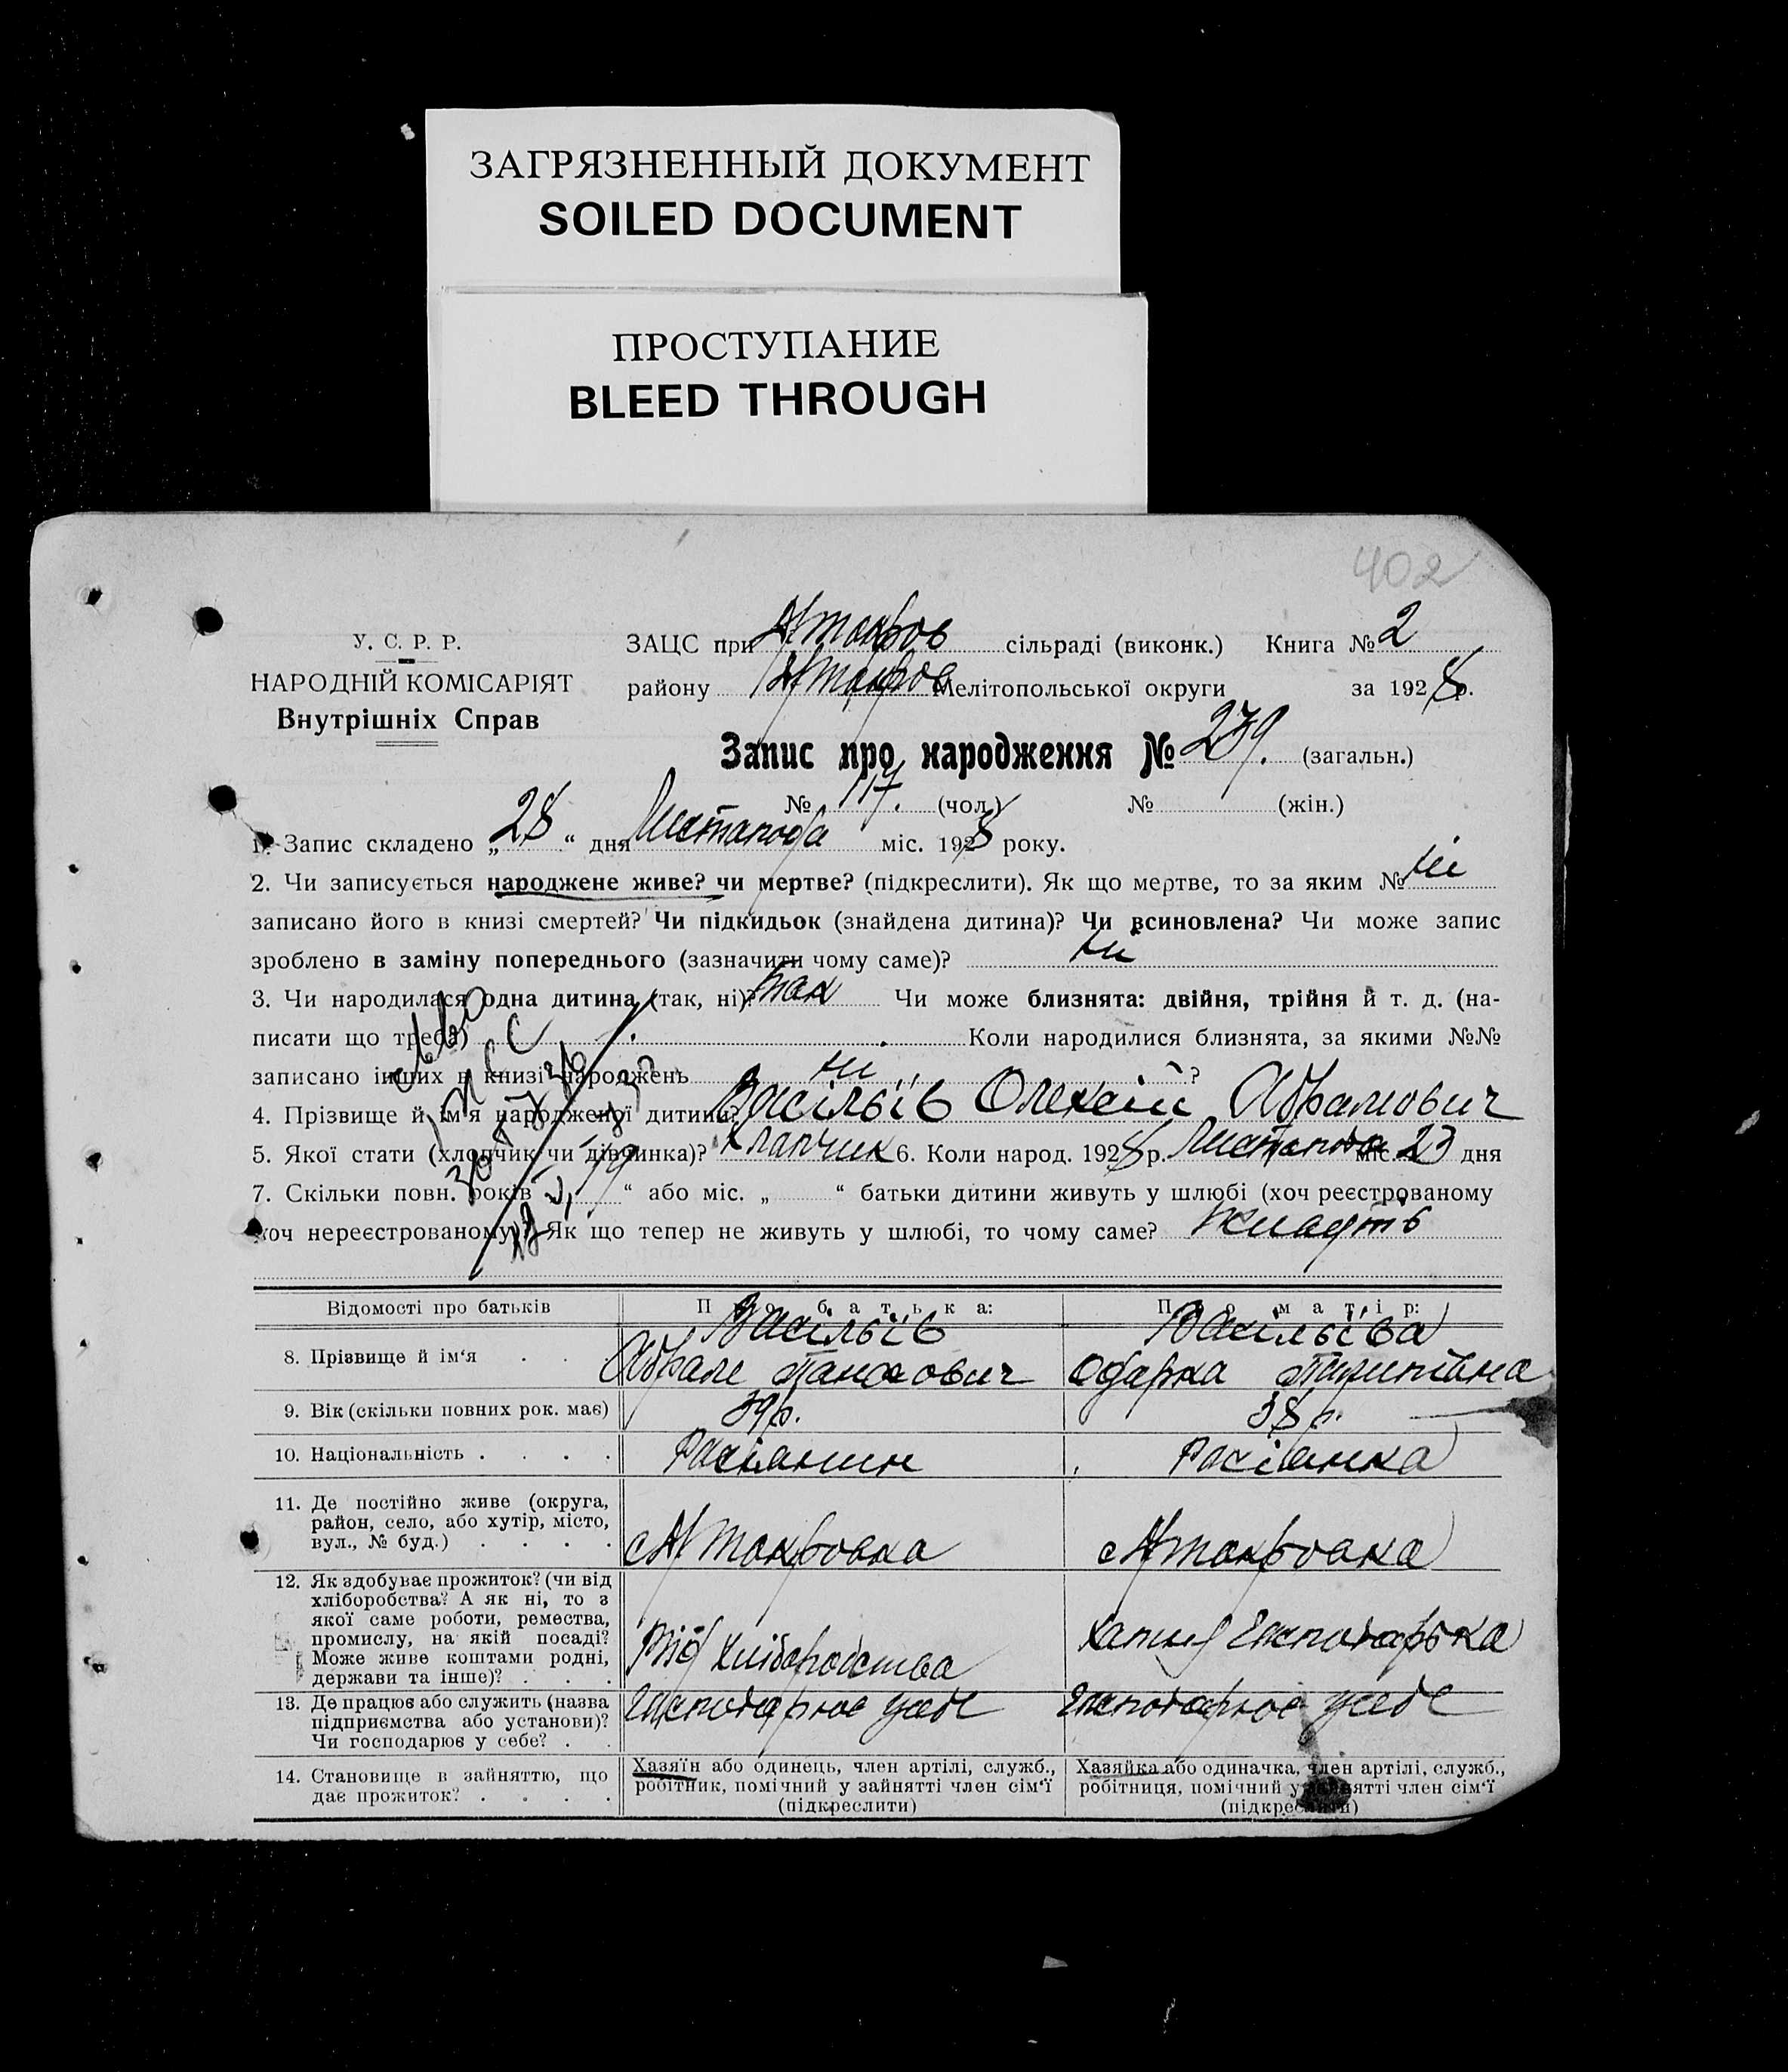 ЗАГРЯЗНЕННЫЙ ДОКУМЕНТ
SOILED DOCUMENT
ПРОСТУПАНИЕ
BLEED THROUGH
402
У. С. Р. Р.
НАРОДНІЙ КОМІСАРІЯТ
Внутрішніх Справ
ЗАЦС при сільраді (виконк.) Книга № 2
району Мелітопольської округи за 1928 р.
Запис про народження № 239. (загальн.)
№ 117. (чол.) № (жін.)
1. Запис складено „28“ дня Листапода міс. 1928 року.
2. Чи записується народжене живе? чи мертве? (підкреслити). Як що мертве, то за яким № ні
записано його в книзі смертей? Чи підкидьок (знайдена дитина)? Чи всиновлена? Чи може запис
зроблено в заміну попереднього (зазначити чому саме)? ні
3. Чи народилася одна дитина (так, ні)? так Чи може близнята: двійня, трійня й т. д. (на-
писати що треба) Коли народилися близнята, за якими №№
записано інших в книзі народжень ні ?
4. Прізвище й ім'я народженої дитини? Васільїв Олексій Абрамович
5. Якої стати (хлопчик чи дівчинка)? Хлапчик 6. Коли народ. 1928 р. Листапода міс. 23 дня
7. Скільки повн. років “ або міс. „ “ батьки дитини живуть у шлюбі (хоч реєстрованому
хоч нереєстрованому)? Як що тепер не живуть у шлюбі, то чому саме?
Відомості про батьків
Про батька:
Про матір:
8. Прізвище й ім'я
Васільїв
Абрам Панасович
Васільїва
Одарка Пилипівна
9. Вік (скільки повних рок. має)
39 р.
38 р.
10. Національність
Расіянин
Расіянка
11. Де постійно живе (округа,
район, село, або хутір, місто,
вул., № буд.)
12. Як здобуває прожиток? (чи від
хліборобства? А як ні, то з
якої саме роботи, ремества,
промислу, на якій посаді?
Може живе коштами родні,
держави та інше)?
Від хліборобства
13. Де працює або служить (назва
підприємства або установи)?
Чи господарює у себе?
Гасподарює у себе
Гасподарює у себе
14. Становище в зайняттю, що
дає прожиток?
Хазяїн або одинець, член артілі, служб.,
робітник, помічний у зайнятті член сім'ї
(підкреслити)
Хазяйка або одиначка, член артілі, служб.,
робітниця, помічний у зайнятті член сім'ї
(підкреслити)